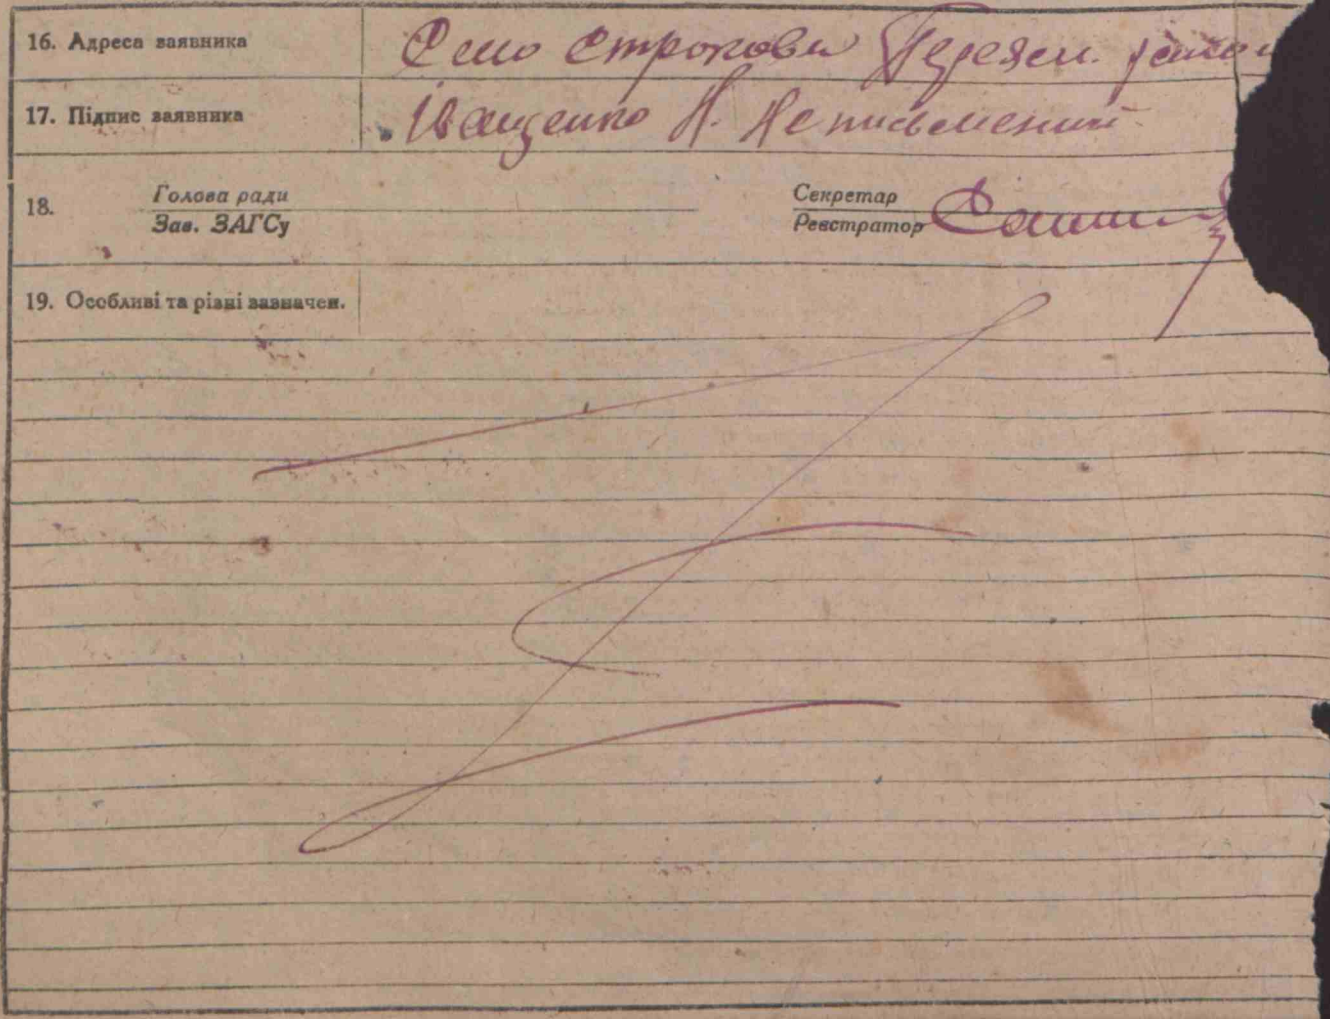 16. Адреса заявника Село Строкова Переясл. району
17. Підпис заявника Іващенко Н. Неписьмений
18. Голова ради Секретар
Зав. ЗАГСу Реєстратор
19. Особливі та різні зазначен.